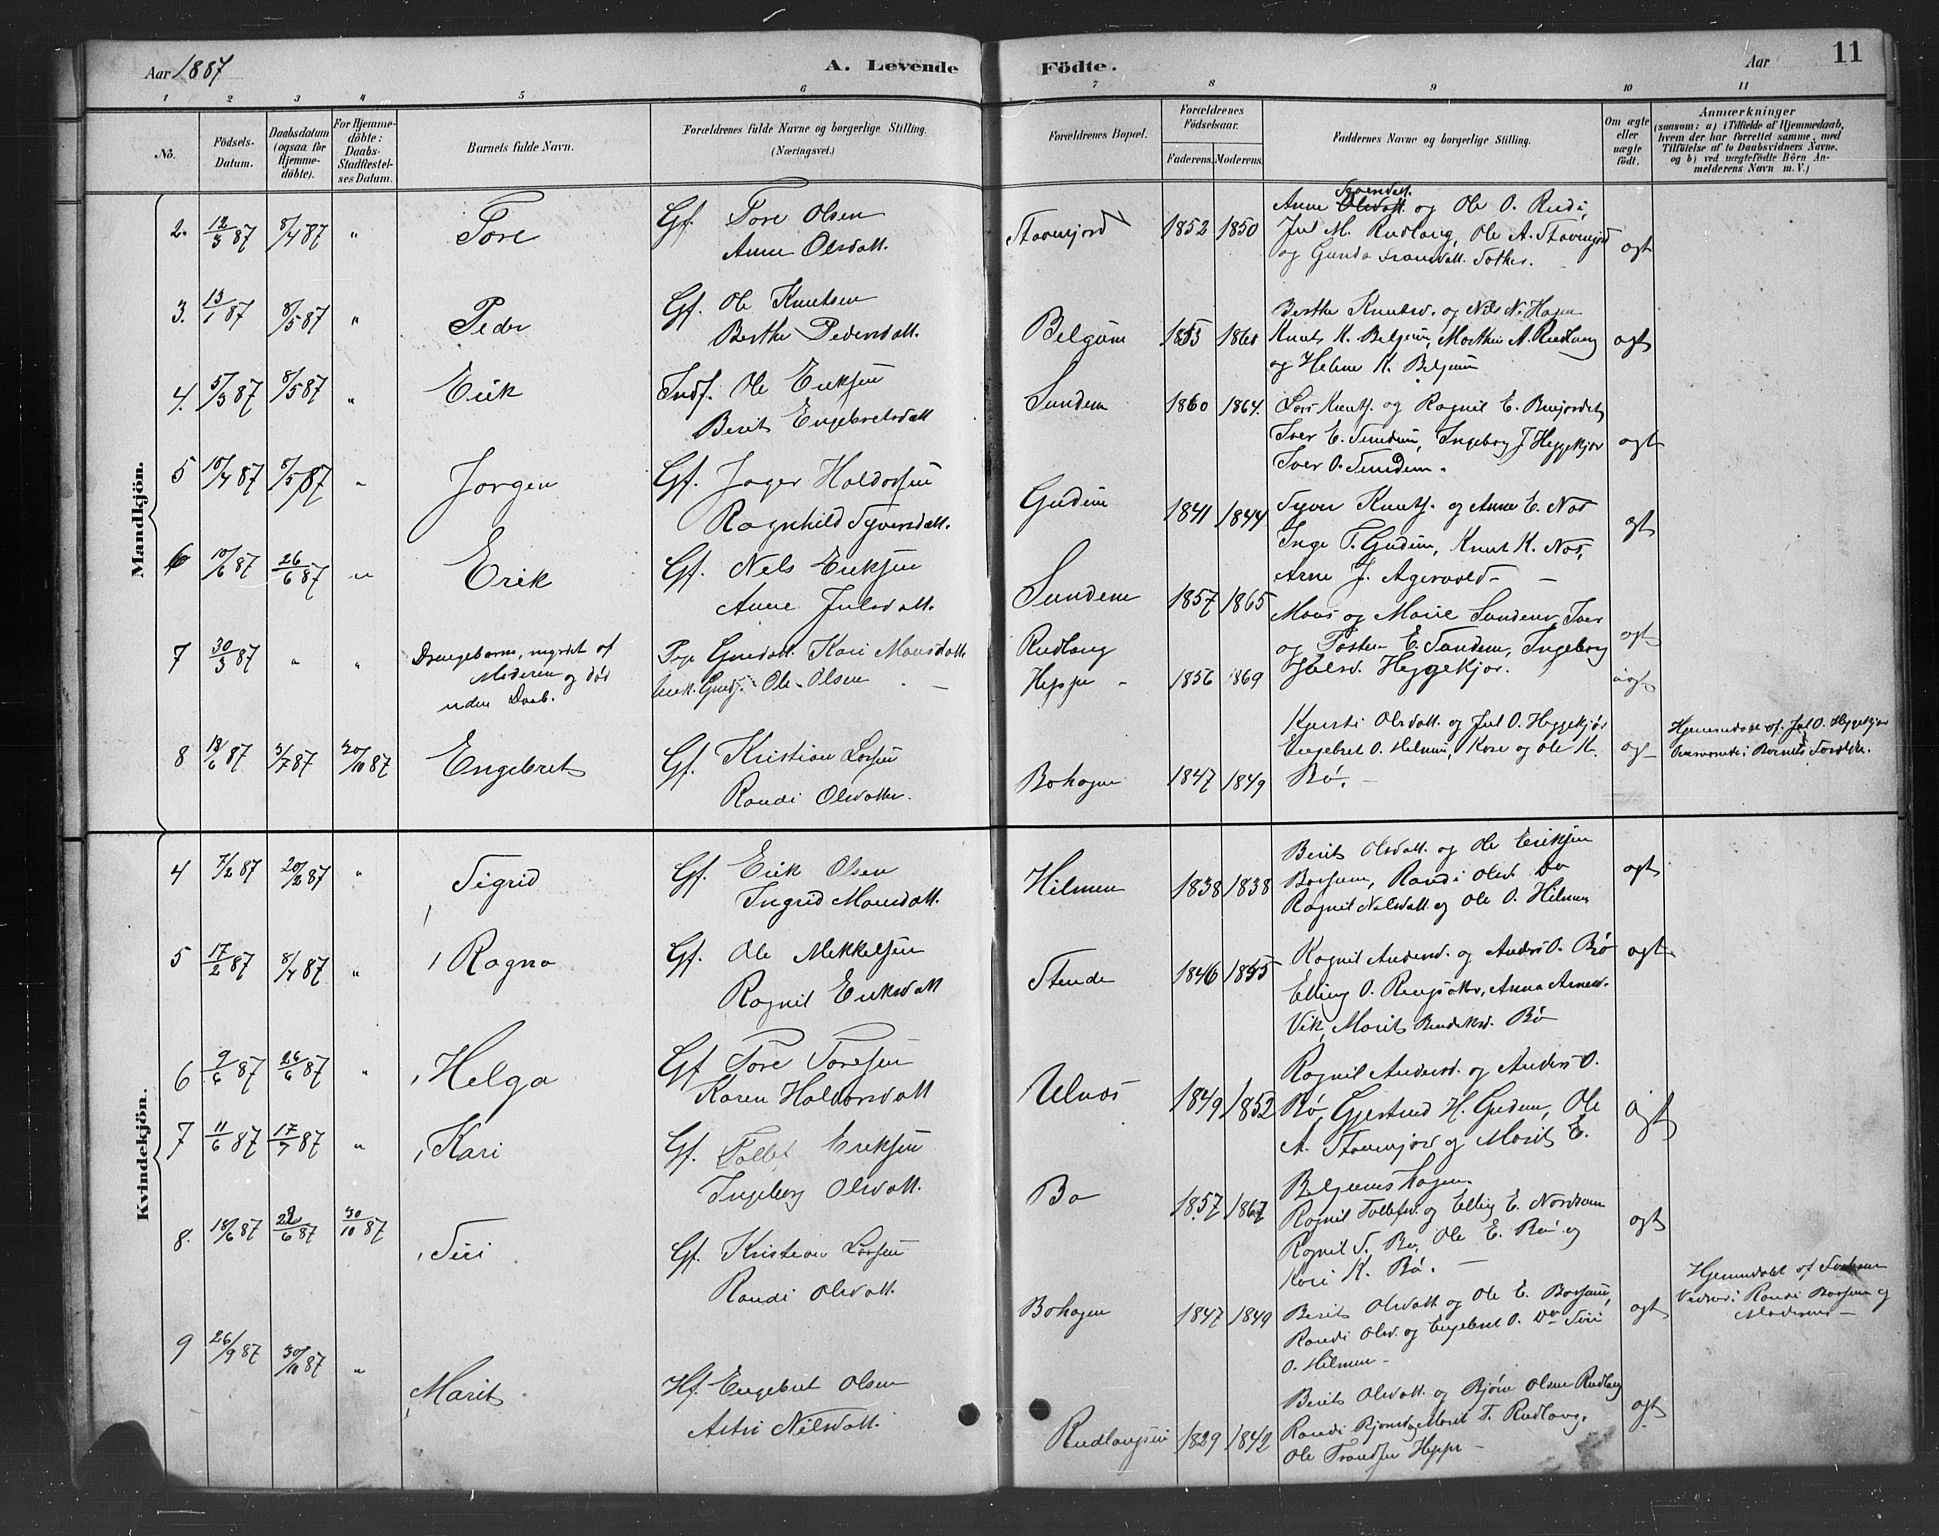 Aar 1887
A. Levende
Födte.
Aar
11
1 2 3 4 5 6 7 8 9 10 11
No.
Födsels-
Datum.
Daabsdatum
(ogsaa for
Hjemme-
döbte).
For Hjemme-
döbte:
Daabs-
Stadfæstel-
ses Datum.
Barnets fulde Navn.
Forældrenes fulde Navne og borgerlige Stilling.
(Næringsvei.)
Forældrenes Bopæl.
Forældrenes
Födselsaar.
Faderens.
Moderens.
Faddernes Navne og borgerlige Stilling.
Om ægte
eller
uægte
födt.
Anmærkninger
(saasom: a) i Tilfælde af Hjemmedaab,
hvem der har forrettet samme, med
Tilföielse af to Daabsvidners Navne,
og b) ved uægtefödte Börn An-
melderens Navn m. V.)
Mandkjön.
2. 12/3 87 8/4 87 " Tore Gf. Tore Olsen
Anne Olsdatt.
Stavenjord 1852 1850
Anne Olsdatt. og Ole O. Rudi,
Jul M. Rudlang, Ole A. Stavenjord
og Gunda
ægt
3. 13/1 87 8/5 87 " Peder Gf. Ole Knutsen
Berthe Pedersdatt.
Belgum 1853 1860
Berthe Knutsd. og Nils N. Hagen
Knut K. Belgum, Marthin A. Rudlang
og Helene K. Belgum
ægt
4. 5/3 87 8/5 87 " Erik Indf. Ole Eriksen
Berit Engebretsdatt
Sundem 1860 1864.
Lars Knuts. og Ragnil E.
Iver E. Sundem, Ingeborg J Heggekjør
Iver O. Sundem.
ægt
5 10/4 87 8/5 87 " Jørgen Gf. Jøger Haldorsen
Ragnhild Syversdatt.
Gudim 1841 1844
Syver Knuts. og Anne E. Nøs
Inge T. Gudim, Knut K. Nøs,
Arne J. Agervold
ægt
6 10/6 87 26/6 87 " Erik Gf. Nels Eriksen
Anne Julsdatt.
Sundem 1857 1865
Mons og Marie Sundem, Iver
og Torsten E. Sundem, Ingeborg
Julsd. Heggekjør.
ægt
7 30/3 87 " " Drengebarn, myrdet af
Moderen og død
uden Daab.
Pige Gurdatt. Kari Monsdatt.
Ole Olsen
Rudlang
Heppe 1856 1869
uægt
8 18/6 87 3/7 87 30/10 87 Engebret Gf. Kristian Larsen
Randi Olsdatter.
Bøhagen 1847 1849
Kjersti Olsdatt. og Jul O. Heggekjør
Engebret O. Hilmen, Kari og Ole K.
Bø.
ægt
Hjemmedøbt af Jul O. Heggekjør
Overværende: Barnets Forældre.
Kvindekjön.
4 7/2 87 20/2 87 " Sigrid Gf. Erik Olsen
Ingrid Monsdatt.
Hilmen 1838 1838
Berit Olsdatt. og Ole Eriksen
Borsum, Randi Olsd. Do
Ragnil Nilsdatt. og Ole O. Hilmen
ægt
5 17/2 87 8/4 87 " Ragna Gf. Ole Mekkelsen
Ragnil Eriksdatt
Stende 1846 1855
Ragnil Andersd. og Anders O. Bø
Elling O. Ringsaker, Anna Arnesd.
Vik, Marit Bendiksd. Bø
ægt.
6 9/6 87 26/6 87 " Helga Gf. Tore Toresen
Karen Haldorsdatt
Ulnøs 1849 1852
Ragnil Andersd. og Anders O.
Bø, Gjertrud H. Gudim, Ole
A. Stavenjord og Marit E.
Belgumshagen.
ægt
7 11/6 87 17/7 87 " Kari Gf. Tollef Eriksen
Ingeborg Olsdatt.
Bø 1857 1867
Ragnil Tollefsd. og Elling E. Nordsven
Ragnil T. Bø, Ole E. Bø og
Kari K. Bø.
ægt
8. 18/6 87 26/6 87 30/10 87 Siri Gf. Kristian Larsen
Randi Olsdatt.
Bøhagen 1847 1849
Berit Olsdatt og Ole E. Borsum,
Randi Olsd. og Engebret O. Do Siri
O. Hilmen
ægt
Hjemmedøbt af
Vidner: Randi Borsum og
Moderen
9 26/9 87 30/10 87 " Marit Hf. Engebret Olsen
Astri Nilsdatt.
Rudlangseie 1829 1842
Berit Olsdatt. og Bjørn Olsen Rudlang
Randi Bjørnsd. og Marit T. Rudlang.
Ole Trondsen Heppe
ægt